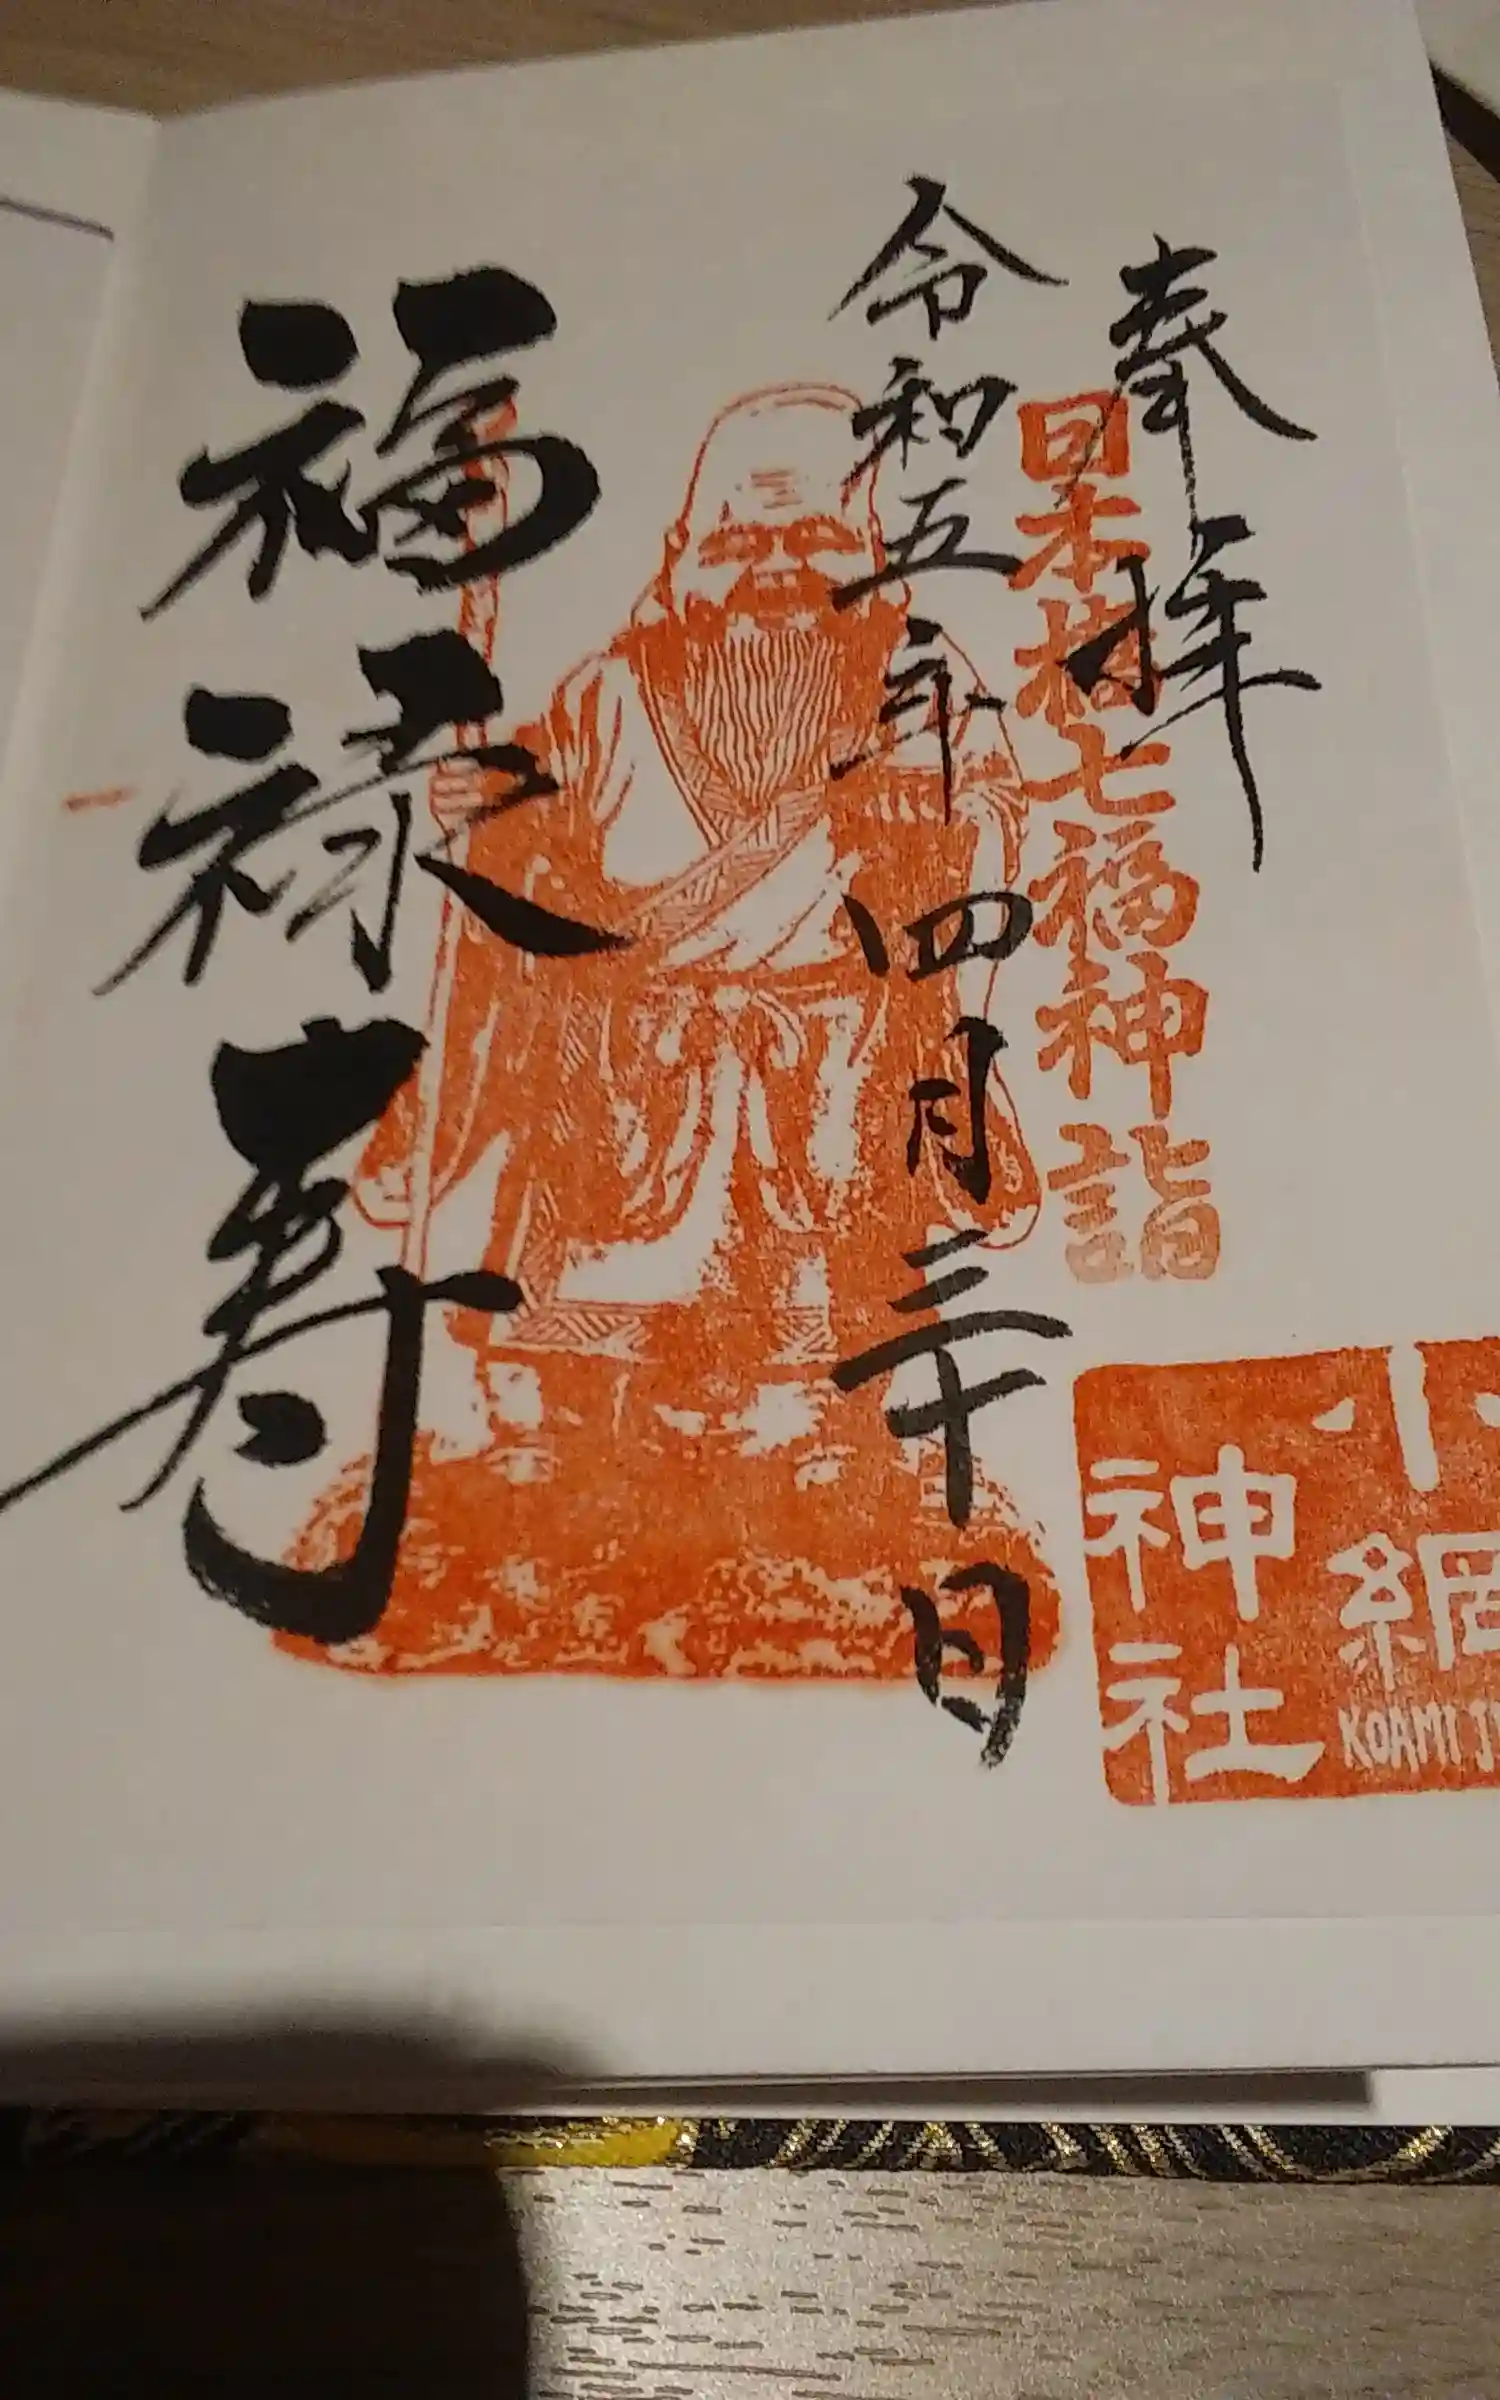 奉拝
日本橋七福神詣
令和五年四月三十日
福禄寿
小網
神社
KOAMI J